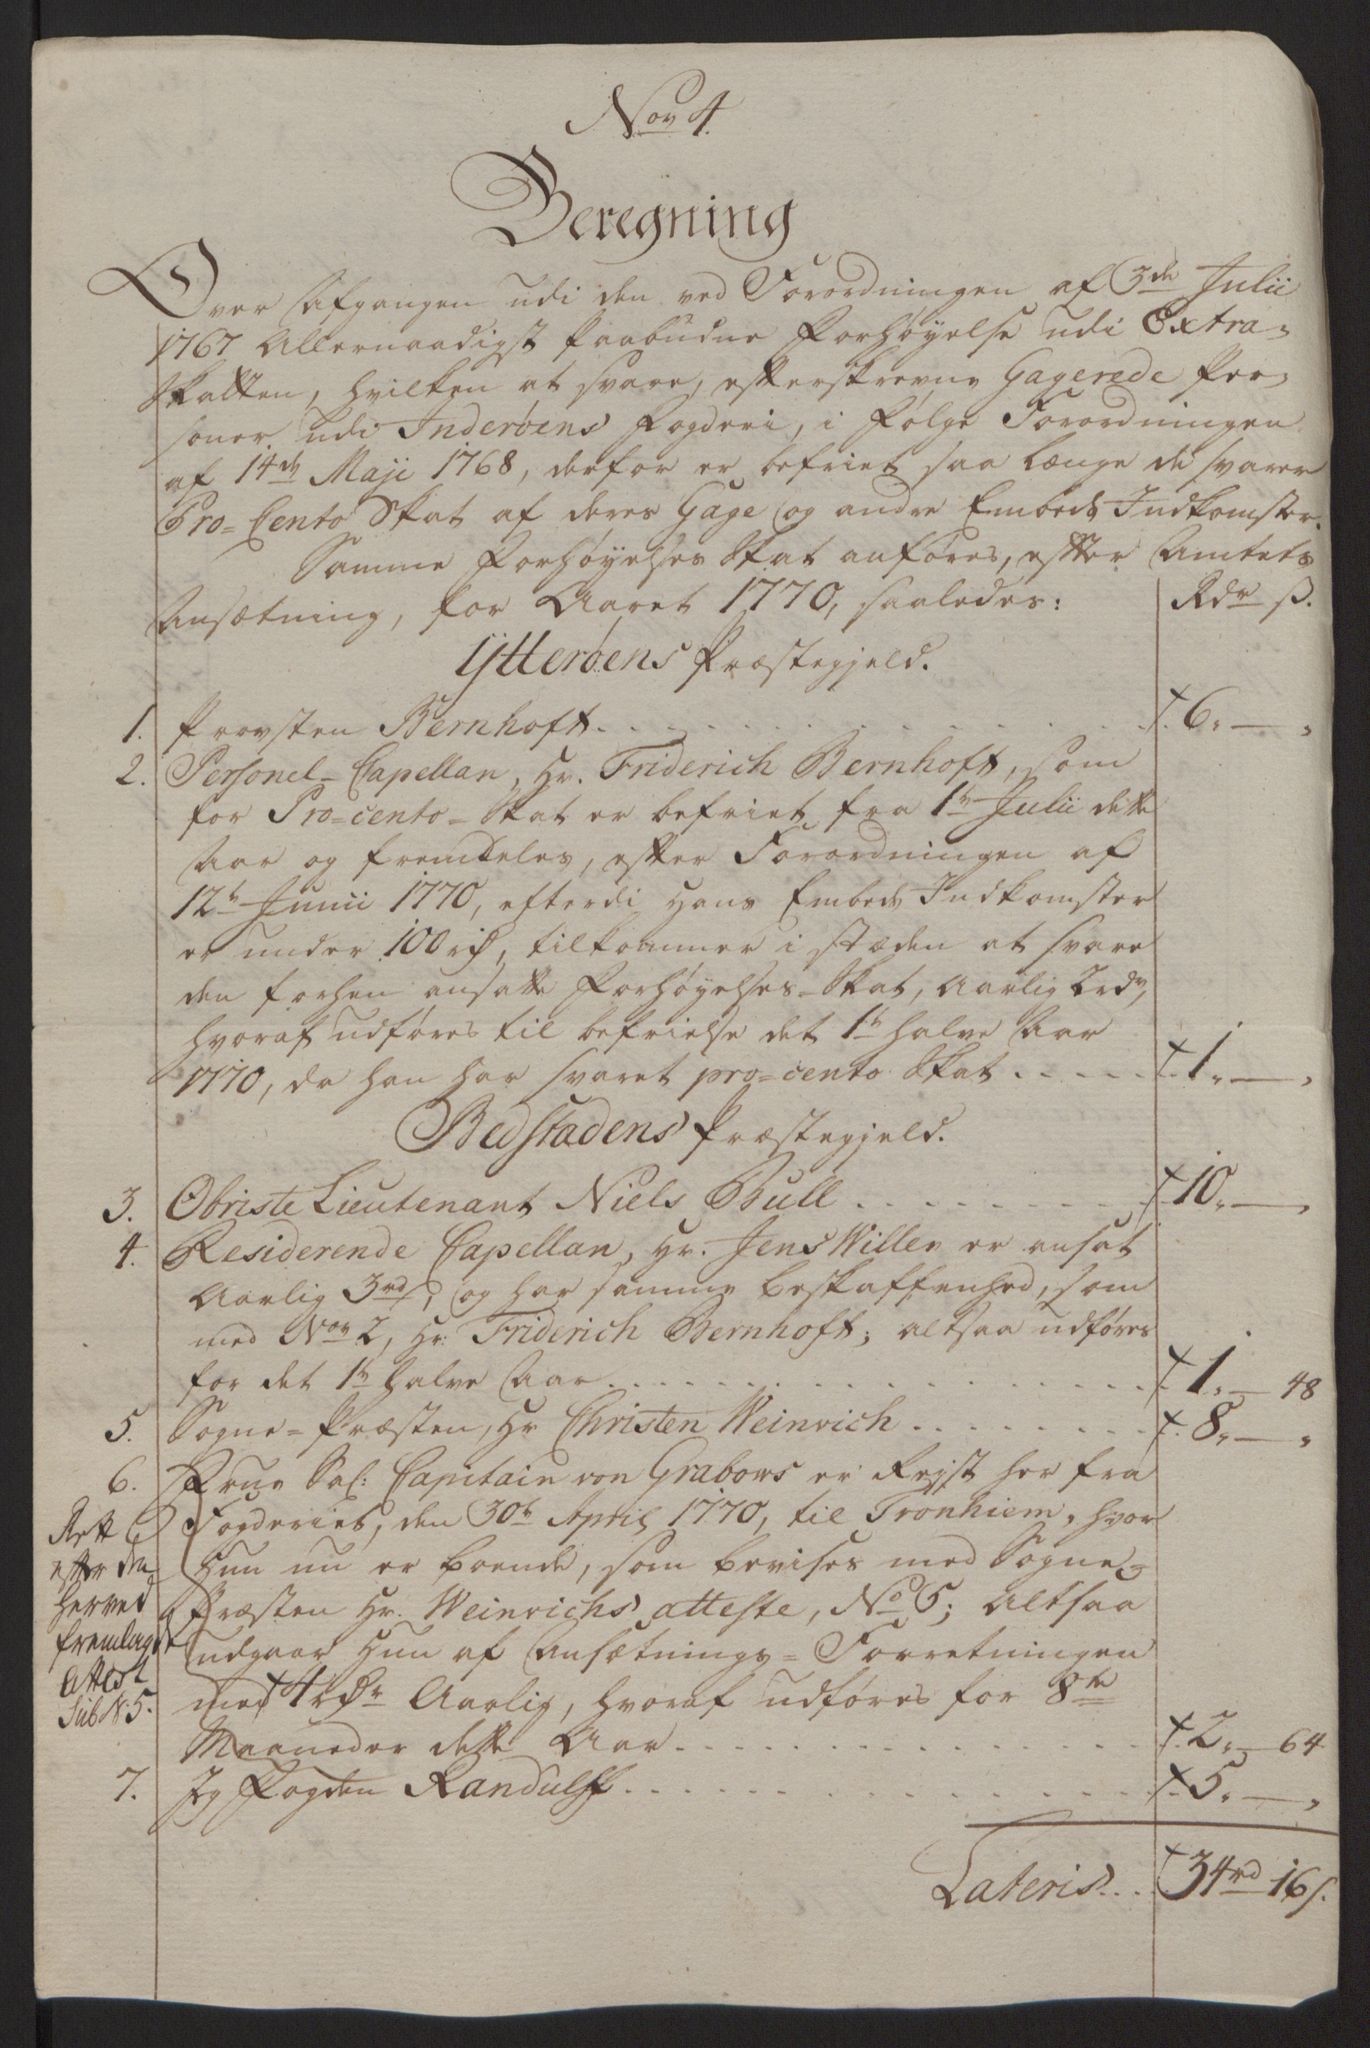 No 4.
Beregning
Over Afgangen udi den ved Forordningen af 3de Julii
1767 Allernaadigst paabudne Forhøyelse udi Extra-
Skatten, hvilken at svare, efterskrevne Gagerede Per-
soner udi Inderøens Fogderi, i følge Forordningen
af 14de Maji 1768, derfor er befriet saa længe de svarer
Pro-Cento Skat af deres Gage og andre Embeds Indkomster.
Samme Forhøyelses Skat anføres, efter Amtets
Ansætning, for Aaret 1770, saaledes:
Rdr ß.
Ytterøens Præstegjeld.
1. Provsten Bernhoft . . . 6. — „
2. Personel-Capellan, Hr. Friderich Bernhoft, som
for Pro-cento-Skat er befriet fra 1te Julii dette
Aar og fremdeles, efter Forordningen af
12te Junii 1770, efterdi Hans Embeds Indkomster
er under 100 rd, tilkommer i stæden at svare
den forhen ansatte Forhøyelses-Skat, Aarlig 2rdr,
hvoraf udføres til befrielse det 1te halve Aar
1770, da han har svaret pro-cento Skat . . . 1. — „
Bedstadens Præstegjeld.
3. Obriste Lieutenant Niels Bull . . . 10. — „
4. Residerende Capellan, Hr. Jens Willer er ansat
Aarlig 3rd, og har samme beskaffenhed, som
med No 2, Hr. Friderich Bernhoft; altsaa udføres
for det 1te halve Aar . . . 1. — 48
5. Sogne-Præsten, Hr Christen Weinrich . . . 8. — „
6. Frue Sal: Capitain von Grabows er Rejst her fra
Fogderiet, den 30te April 1770, til Tronhiem, hvor
Hun nu er boende, som bevises med Sogne-
Præsten Hr. Weinrichs atteste, No 5; Altsaa
udgaar Hun af Ansætnings-Forretningen
med 4 rdr Aarlig, hvoraf udføres for 8te
Maaneder dette Aar . . . 2. — 64
Rett
efter den
herved
fremlagt
Attest
Sub N: 5.
7. Jeg Fogden Randulff . . . 5. — „
Lateris . . . 34rd 16ß.